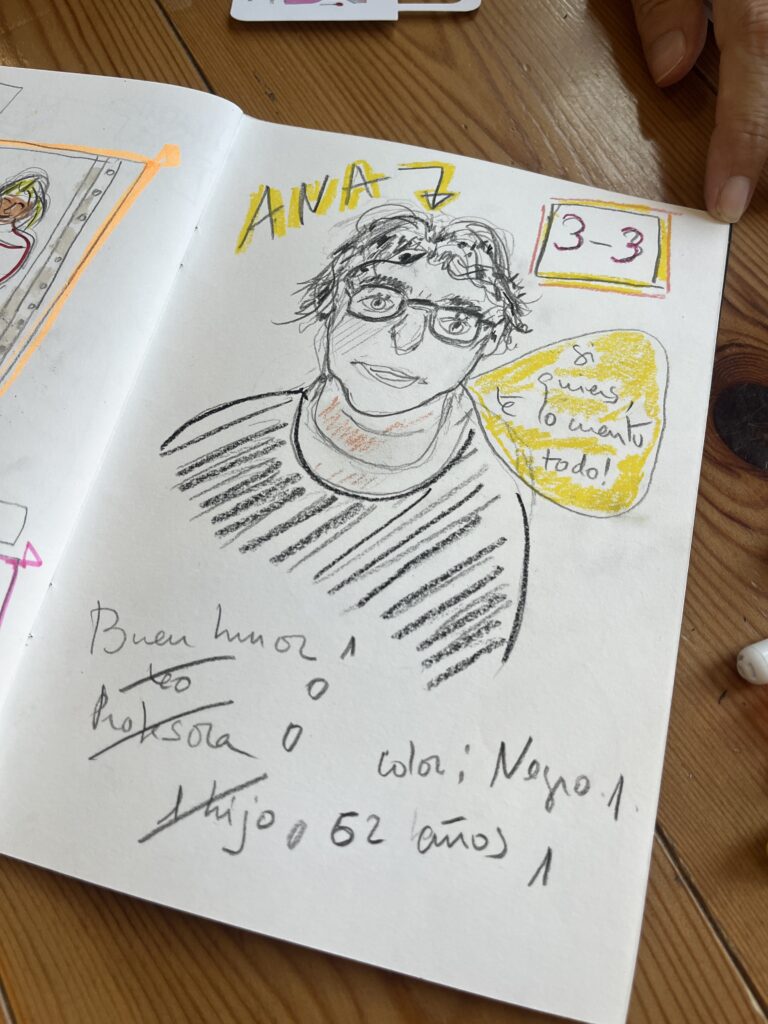 ANA
3-3
si
quieres,
te lo cuento
todo!
Buen humor 1
Leo 0
Profesora 0
color: Negro 1.
1 hijo 0 52 años 1